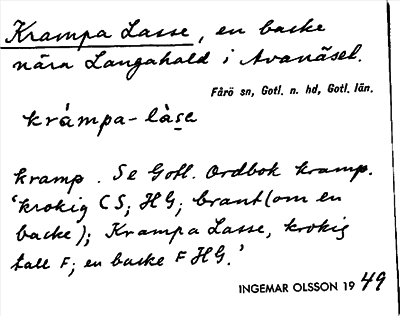 Krampa Lasse, en backe
nära Langahald i Avanäset.
Fårö sn, Gotl. n. hd, Gotl. län.
krámpa-làse
kramp. Se Gotl. Ordbok kramp.
'krokig CS; HG; brant (om en
backe); Krampa Lasse, krokig
tall F; en backe F HG.'
INGEMAR OLSSON 1949